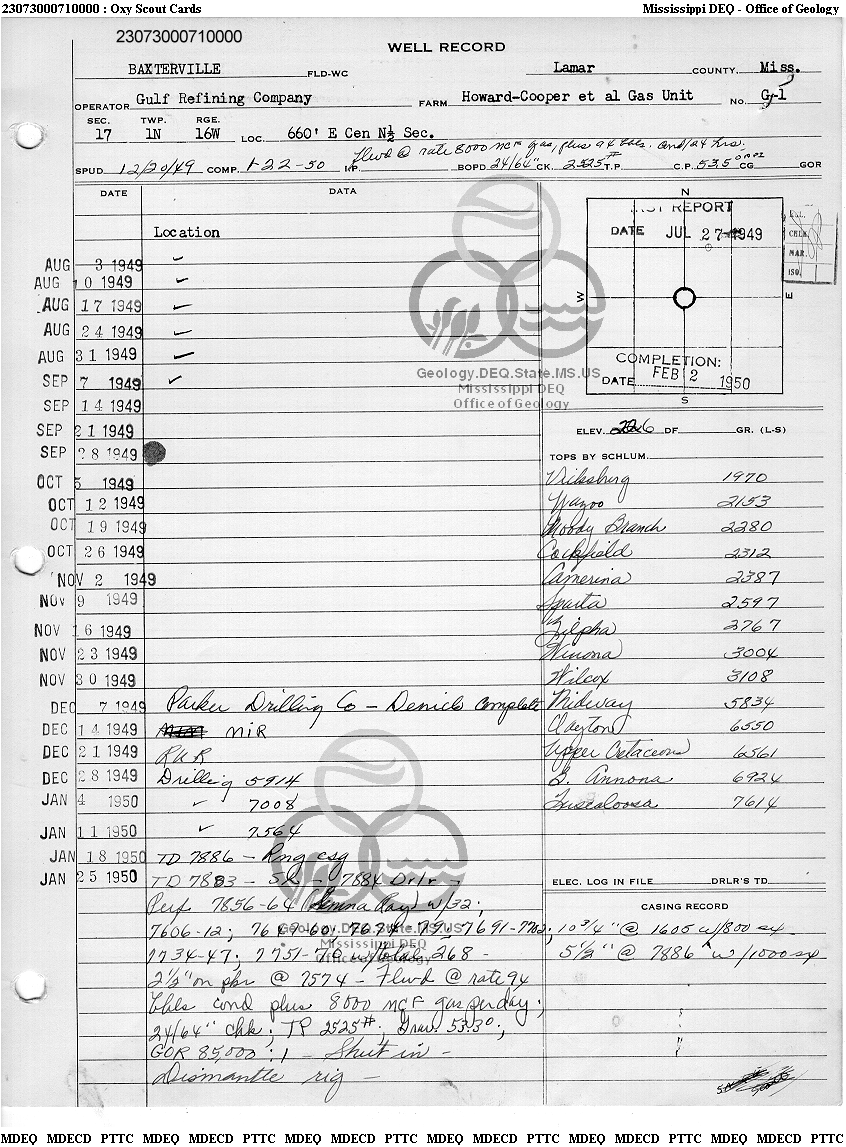 23073000710000 : Oxy Scout Cards
Mississippi DEQ - Office of Geology
23073000710000
WELL RECORD
BAXTERVILLE FLD-WC Lamar COUNTY, Miss.
OPERATOR Gulf Refining Company FARM Howard-Cooper et al Gas Unit No. G-1
SEC. TWP. RGE.
17 1N 16W LOC. 660' E Cen N½ Sec.
Flwd @ rate 8000 MCF gas, plus 94 bbls. cond/24 hrs.
SPUD 12/20/49 COMP. 1-22-50 I.P. BOPD 24/64" CK. 2525# T.P. C.P. 53.5 CG GOR
DATE DATA
Location
AUG 3 1949 ✓
AUG 10 1949 ✓
AUG 17 1949 ✓
AUG 24 1949 ✓
AUG 31 1949 ✓
SEP 7 1949 ✓
SEP 14 1949
SEP 21 1949
SEP 28 1949
OCT 5 1949
OCT 12 1949
OCT 19 1949
OCT 26 1949
NOV 2 1949
NOV 9 1949
NOV 16 1949
NOV 23 1949
NOV 30 1949
DEC 7 1949 Parker Drilling Co -
DEC 14 1949 MIR
DEC 21 1949 RUR
DEC 28 1949 Drilling 5914
JAN 4 1950 ✓ 7008
JAN 11 1950 ✓ 7564
JAN 18 1950 TD 7886 - Rng csg
JAN 25 1950 TD 7883 - 7884 Drlr -
Perf 7856-64 (Gamma Ray) w/32;
7606-12; 7649-60; 7674-79; 7691-7702;
7734-47; 7751-78 w/total 268 -
2½" on pkr @ 7574 - Flwd @ rate 94
bbls cond plus 8000 MCF gas per day;
24/64" chk; TP 2525#; Grav. 53.30;
GOR 85,000 : 1 - Shut in -
Dismantle rig -
N
W
E
S
REPORT
DATE JUL 27 1949
COMPLETION:
DATE FEB 2 1950
CHLK.
MAR.
ISO.
ELEV. 226 DF GR. (L-S)
TOPS BY SCHLUM.
Vicksburg 1970
Yazoo 2153
Moody Branch 2280
Cockfield 2312
Camerina 2387
Sparta 2597
Zilpha 2767
Winona 3004
Wilcox 3108
Midway 5834
Clayton 6550
Upper Cretaceous 6561
B. Annona 6924
Tuscaloosa 7614
ELEC. LOG IN FILE DRLR'S TD
CASING RECORD
10 3/4" @ 1605 w/800 sx
5 1/2" @ 7886 w/1000 sx
Geology.DEQ.State.MS.US
Mississippi DEQ
Office of Geology
Mississippi DEQ
MDEQ MDECD PTTC MDEQ MDECD PTTC MDEQ MDECD PTTC MDEQ MDECD PTTC MDEQ MDECD PTTC MDEQ MDECD PTTC